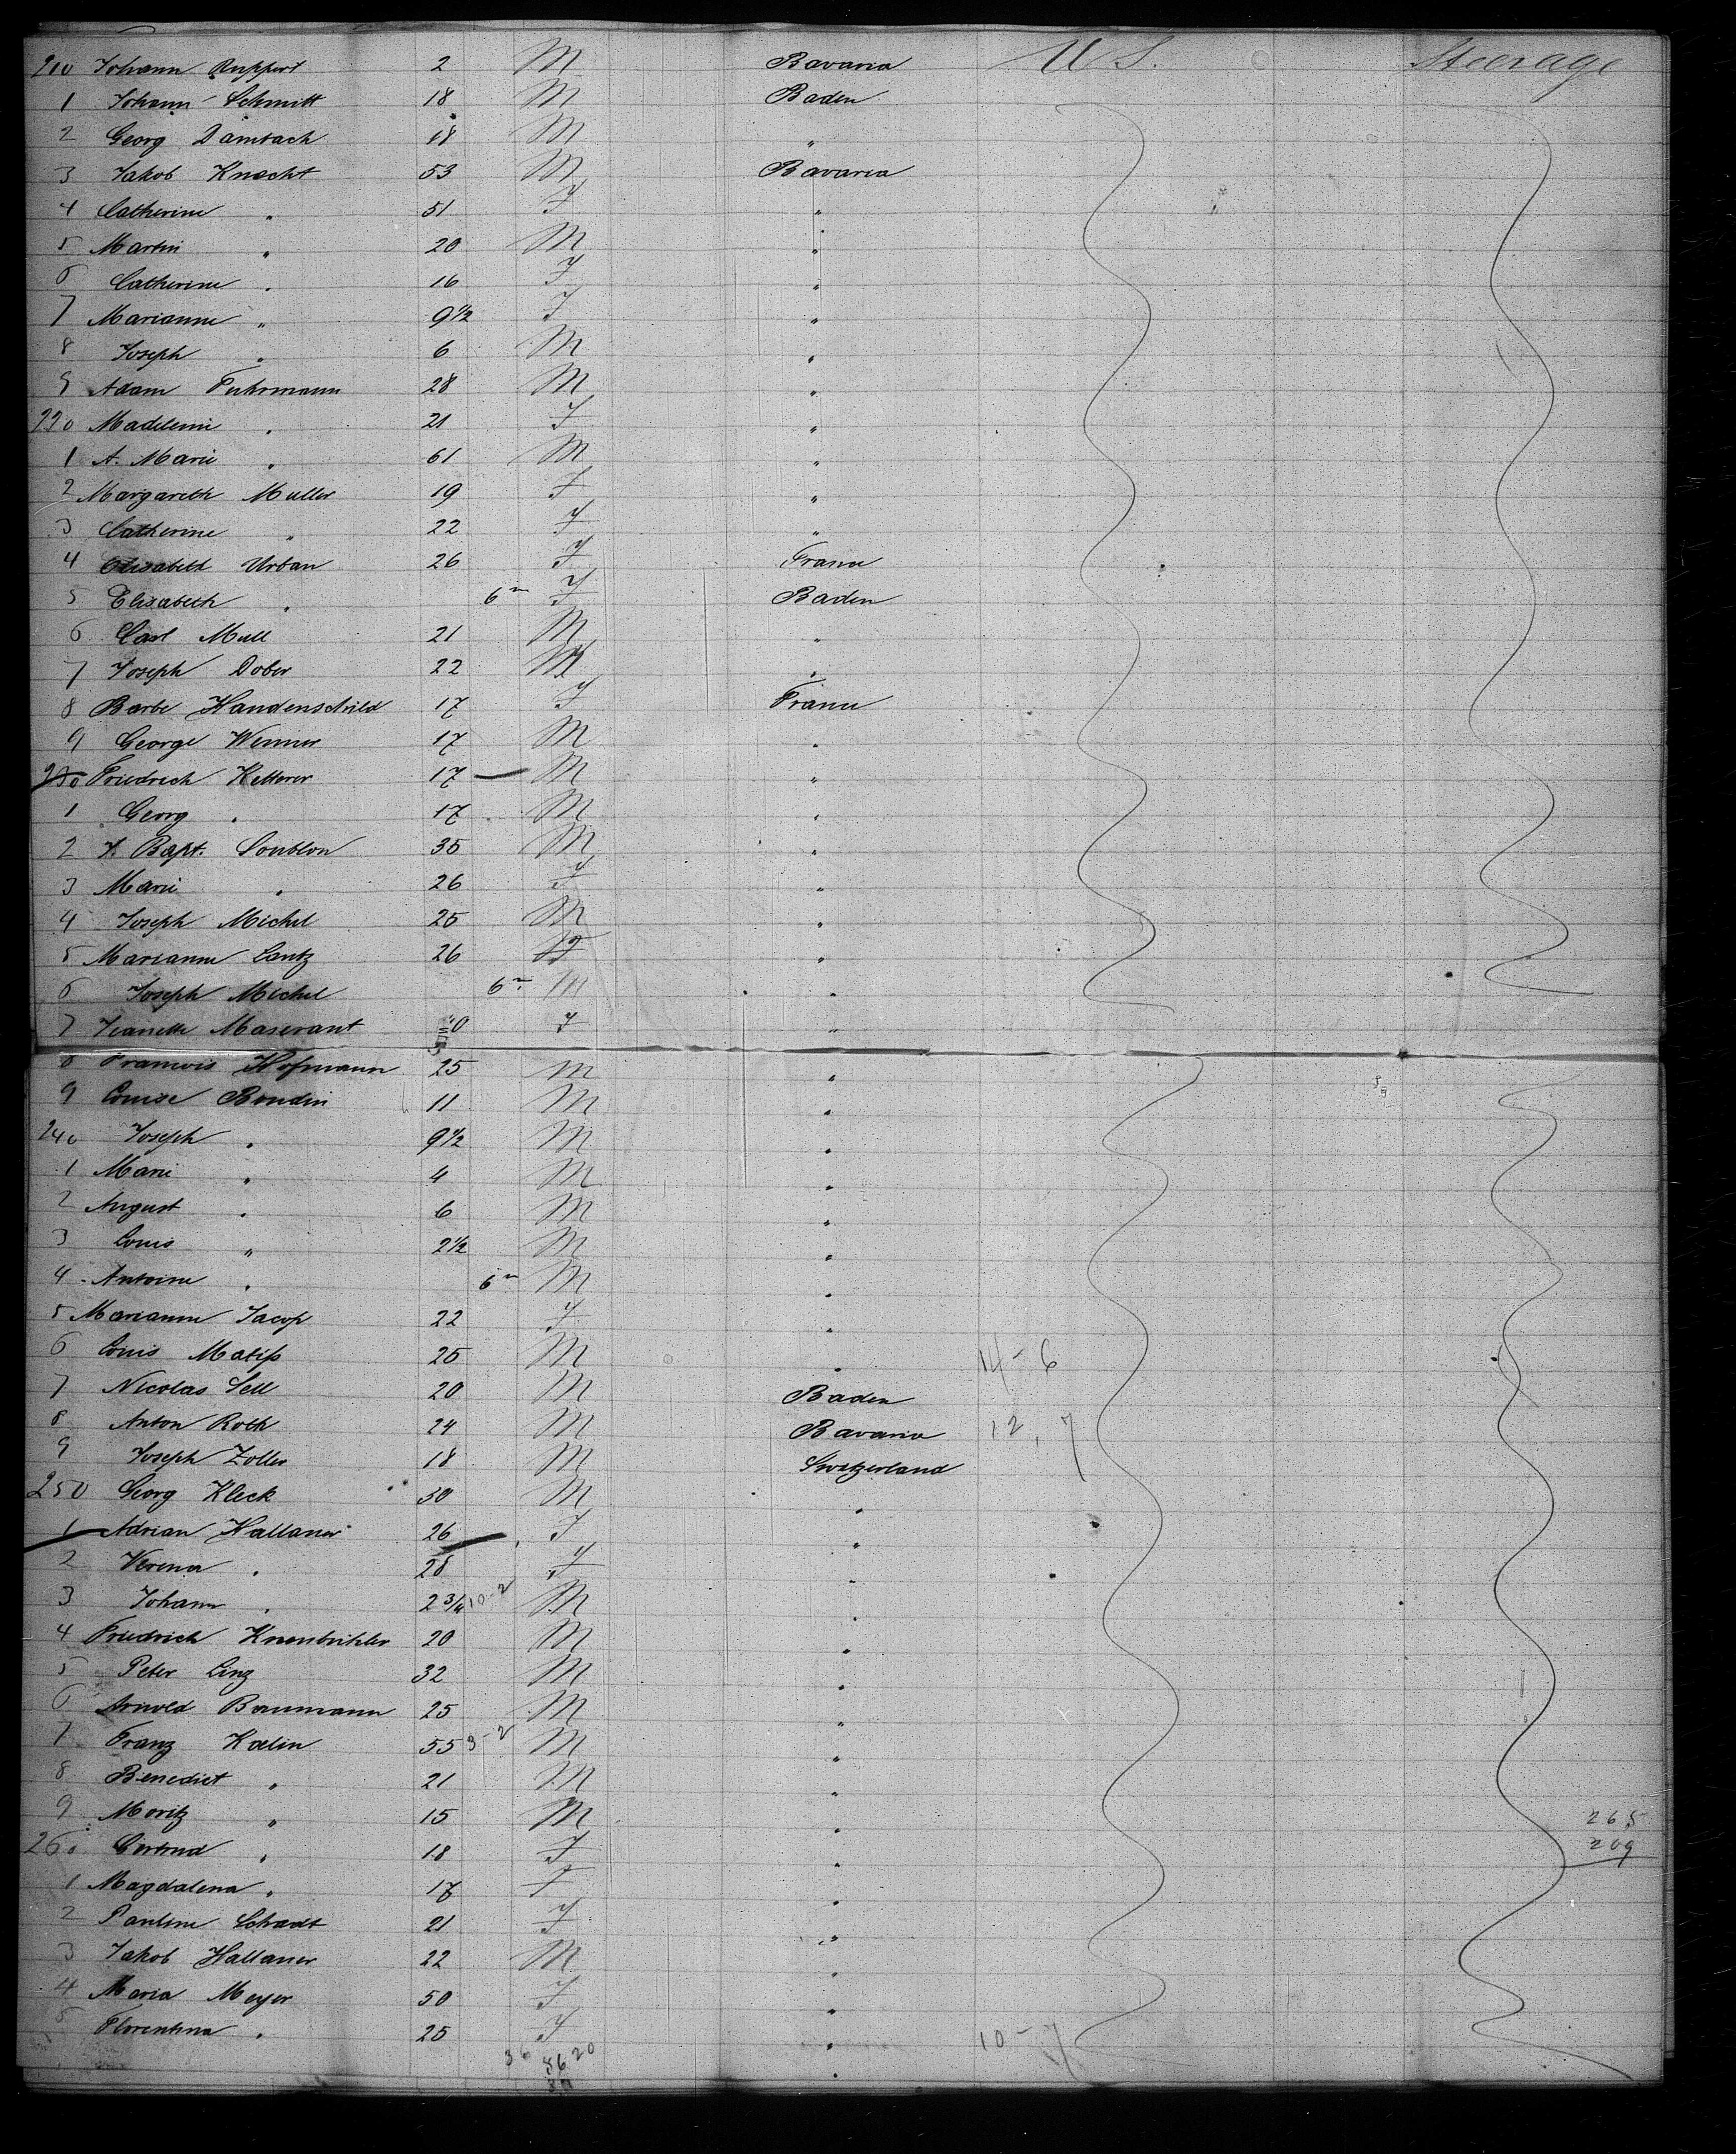 210 Johann Ruppert 2 M Bavaria U S. Steerage
1 Johann Schmitt 18 M Baden
2 Georg Dambach 18 M "
3 Jakob Knecht 53 M Bavaria
4 Catherine " 51 F "
5 Martin " 20 M "
6 Catherine " 16 F "
7 Marianne " 9 1/2 F "
8 Joseph " 6 M "
9 Adam Fuhrmann 28 M "
220 Madeleine " 21 F "
1 A. Marie " 61 M "
2 Margareth Muller 19 F "
3 Catherine " 22 F "
4 Elisabeth Urban 26 F France
5 Elisabeth " 6 m F Baden
6 Carl Mull 21 M "
7 Joseph Dober 22 M "
8 Barbe Handenschild 17 F France
9 George Wenner 17 M "
230 Friedrich Ketterer 17 M "
1 Georg " 17 M "
2 J. Bapt. Soublon 35 M "
3 Marie " 26 F "
4 Joseph Michel 25 M "
5 Marianne Lantz 26 F "
6 Joseph Michel 6 m M "
7 Jeanette Maserant F "
8 Francois Hofmann 25 M "
9 Louise Boudin 11 M "
240 Joseph " 9 1/2 M "
1 Marie " 4 M "
2 August " 6 M "
3 Louis " 2 1/2 M "
4 Antoine " 6 m M "
5 Marianne Jacop 22 F "
6 Louis Matiss 25 M " 14 - 6
7 Nicolas Sell 20 M Baden
8 Anton Roth 24 M Bavaria 12, 7
9 Joseph Zoller 18 M Switzerland
250 Georg Kleck 30 M "
1 Adrian Hallauer 26 F "
2 Verena " 28 F "
3 Johann " 2 3/4 10-2 M "
4 Friedrich 20 M "
5 Peter Linz 32 M "
6 Arnold Baumann 25 M "
7 Franz Kalin 55 3-2 M "
8 Benedict " 21 M "
9 Moritz " 15 M " 265
260 Gertrud " 18 F " 209
1 Magdalena " 17 F "
2 Pauline Schadt 21 F "
3 Jakob Hallauer 22 M "
4 Maria Meyer 50 F "
5 Florentina " 25 F " 10 - 7
36 36 20